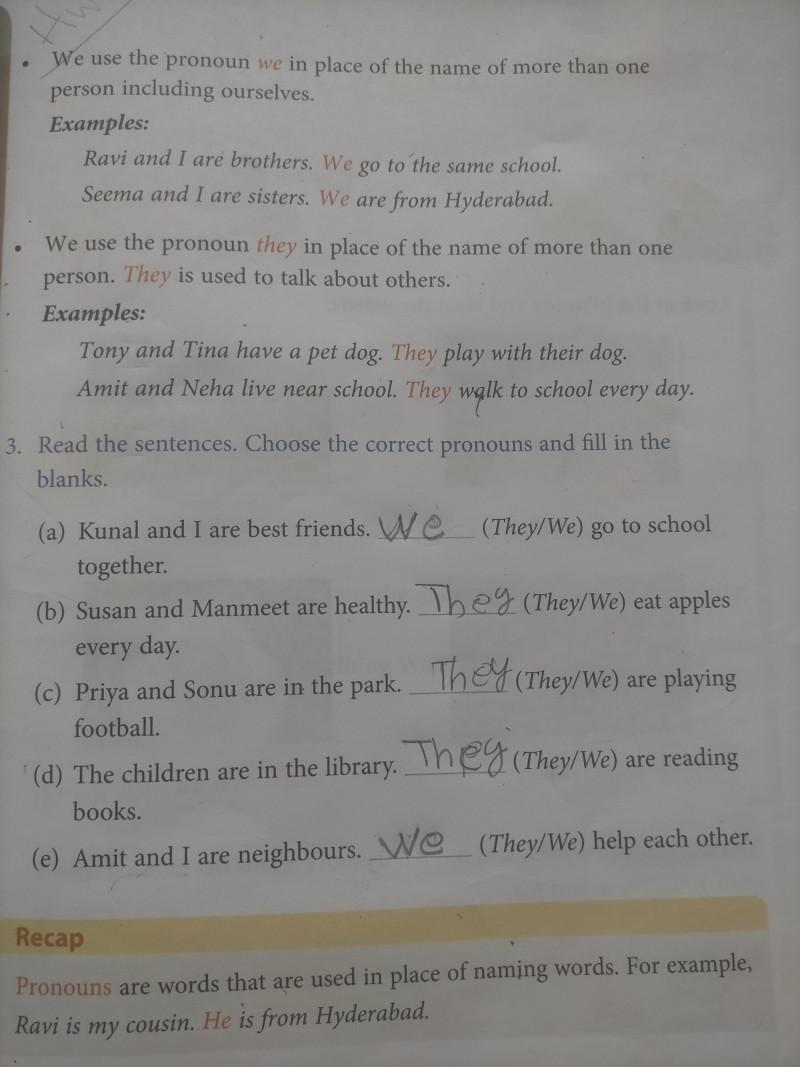 HW
• We use the pronoun we in place of the name of more than one
person including ourselves.
Examples:
Ravi and I are brothers. We go to the same school.
Seema and I are sisters. We are from Hyderabad.
• We use the pronoun they in place of the name of more than one
person. They is used to talk about others.
Examples:
Tony and Tina have a pet dog. They play with their dog.
Amit and Neha live near school. They walk to school every day.
3. Read the sentences. Choose the correct pronouns and fill in the
blanks.
(a) Kunal and I are best friends. We (They/We) go to school
together.
(b) Susan and Manmeet are healthy. They (They/We) eat apples
every day.
(c) Priya and Sonu are in the park. They (They/We) are playing
football.
(d) The children are in the library. They (They/We) are reading
books.
(e) Amit and I are neighbours. We (They/We) help each other.
Recap
Pronouns are words that are used in place of naming words. For example,
Ravi is my cousin. He is from Hyderabad.